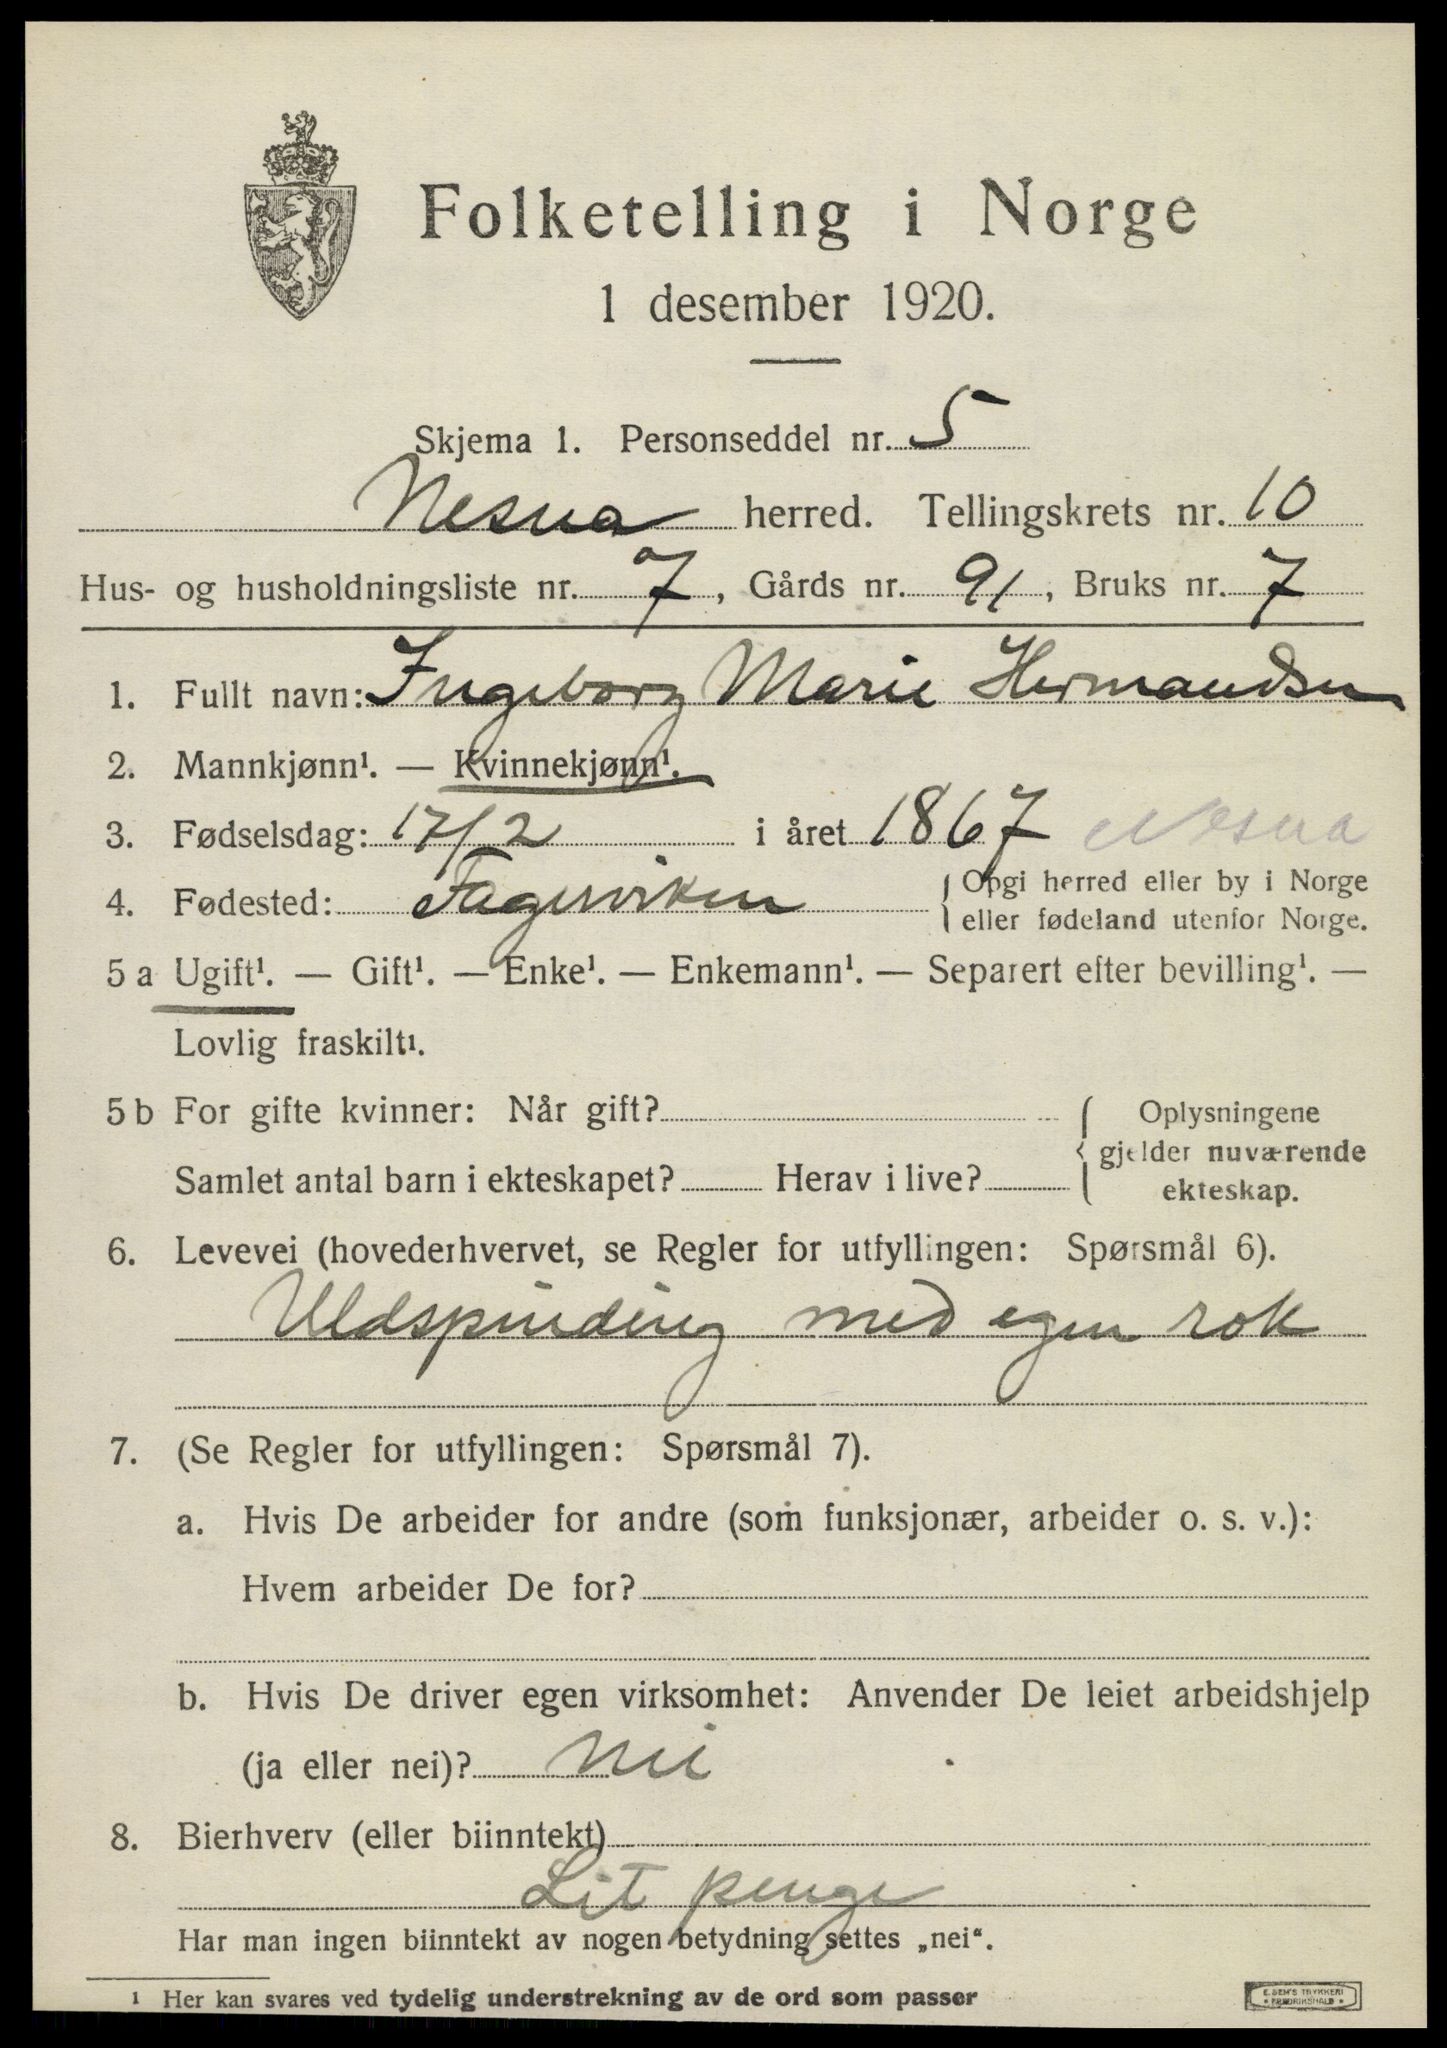 Folketelling i Norge
1 desember 1920.
Skjema 1. Personseddel nr. 5
Nesna herred. Tellingskrets nr. 10
Hus- og husholdningsliste nr. 7, Gårds nr. 91, Bruks nr. 7
1. Fullt navn: Ingeborg Marie Hermandsen
2. Mannkjønn¹. — Kvinnekjønn¹.
3. Fødselsdag: 17/2 i året 1867 Nesna
4. Fødested: Fagerviken {Opgi herred eller by i Norge
eller fødeland utenfor Norge.
5 a Ugift¹. — Gift¹. — Enke¹. — Enkemann¹. — Separert efter bevilling¹. —
Lovlig fraskilt¹.
5 b For gifte kvinner: Når gift? { Oplysningene
gjelder nuværende
Samlet antal barn i ekteskapet? Herav i live? ekteskap.
6. Levevei (hovederhvervet, se Regler for utfyllingen: Spørsmål 6).
Uldspinding med egen rok
7. (Se Regler for utfyllingen: Spørsmål 7).
a. Hvis De arbeider for andre (som funksjonær, arbeider o. s. v.):
Hvem arbeider De for?
b. Hvis De driver egen virksomhet: Anvender De leiet arbeidshjelp
(ja eller nei)? nei
8. Bierhverv (eller biinntekt)
Lit penge
Har man ingen biinntekt av nogen betydning settes „nei“.
¹ Her kan svares ved tydelig understrekning av de ord som passer
E. SEM'S TRYKKERI
FREDRIKSHALD